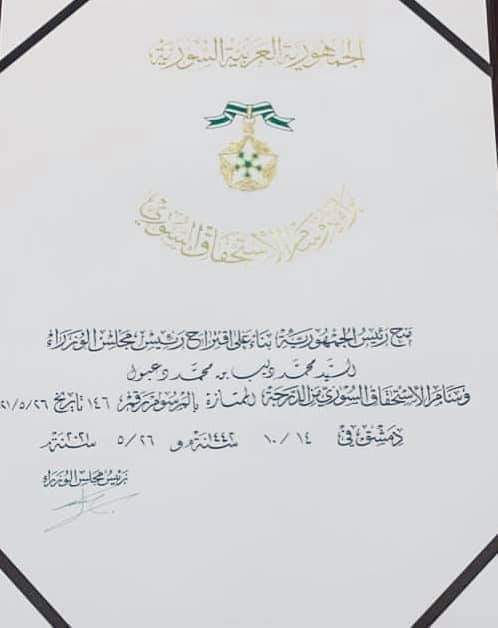 الجمهورية العربية السورية
براءة وسام الاستحقاق السوري
منح رئيس الجمهورية بناء على اقتراح رئيس مجلس الوزراء
السيد محمد ديب بن محمد دعبول
وسام الاستحقاق السوري من الدرجة الممتازة بالمرسوم رقم ١٤٦ تاريخ ٢١/٥/٢٦
دمشق في ١٤ / ١٠ سنة ١٤٤٢ و ٥/٢٦ سنة ٢٠٢١
رئيس مجلس الوزراء